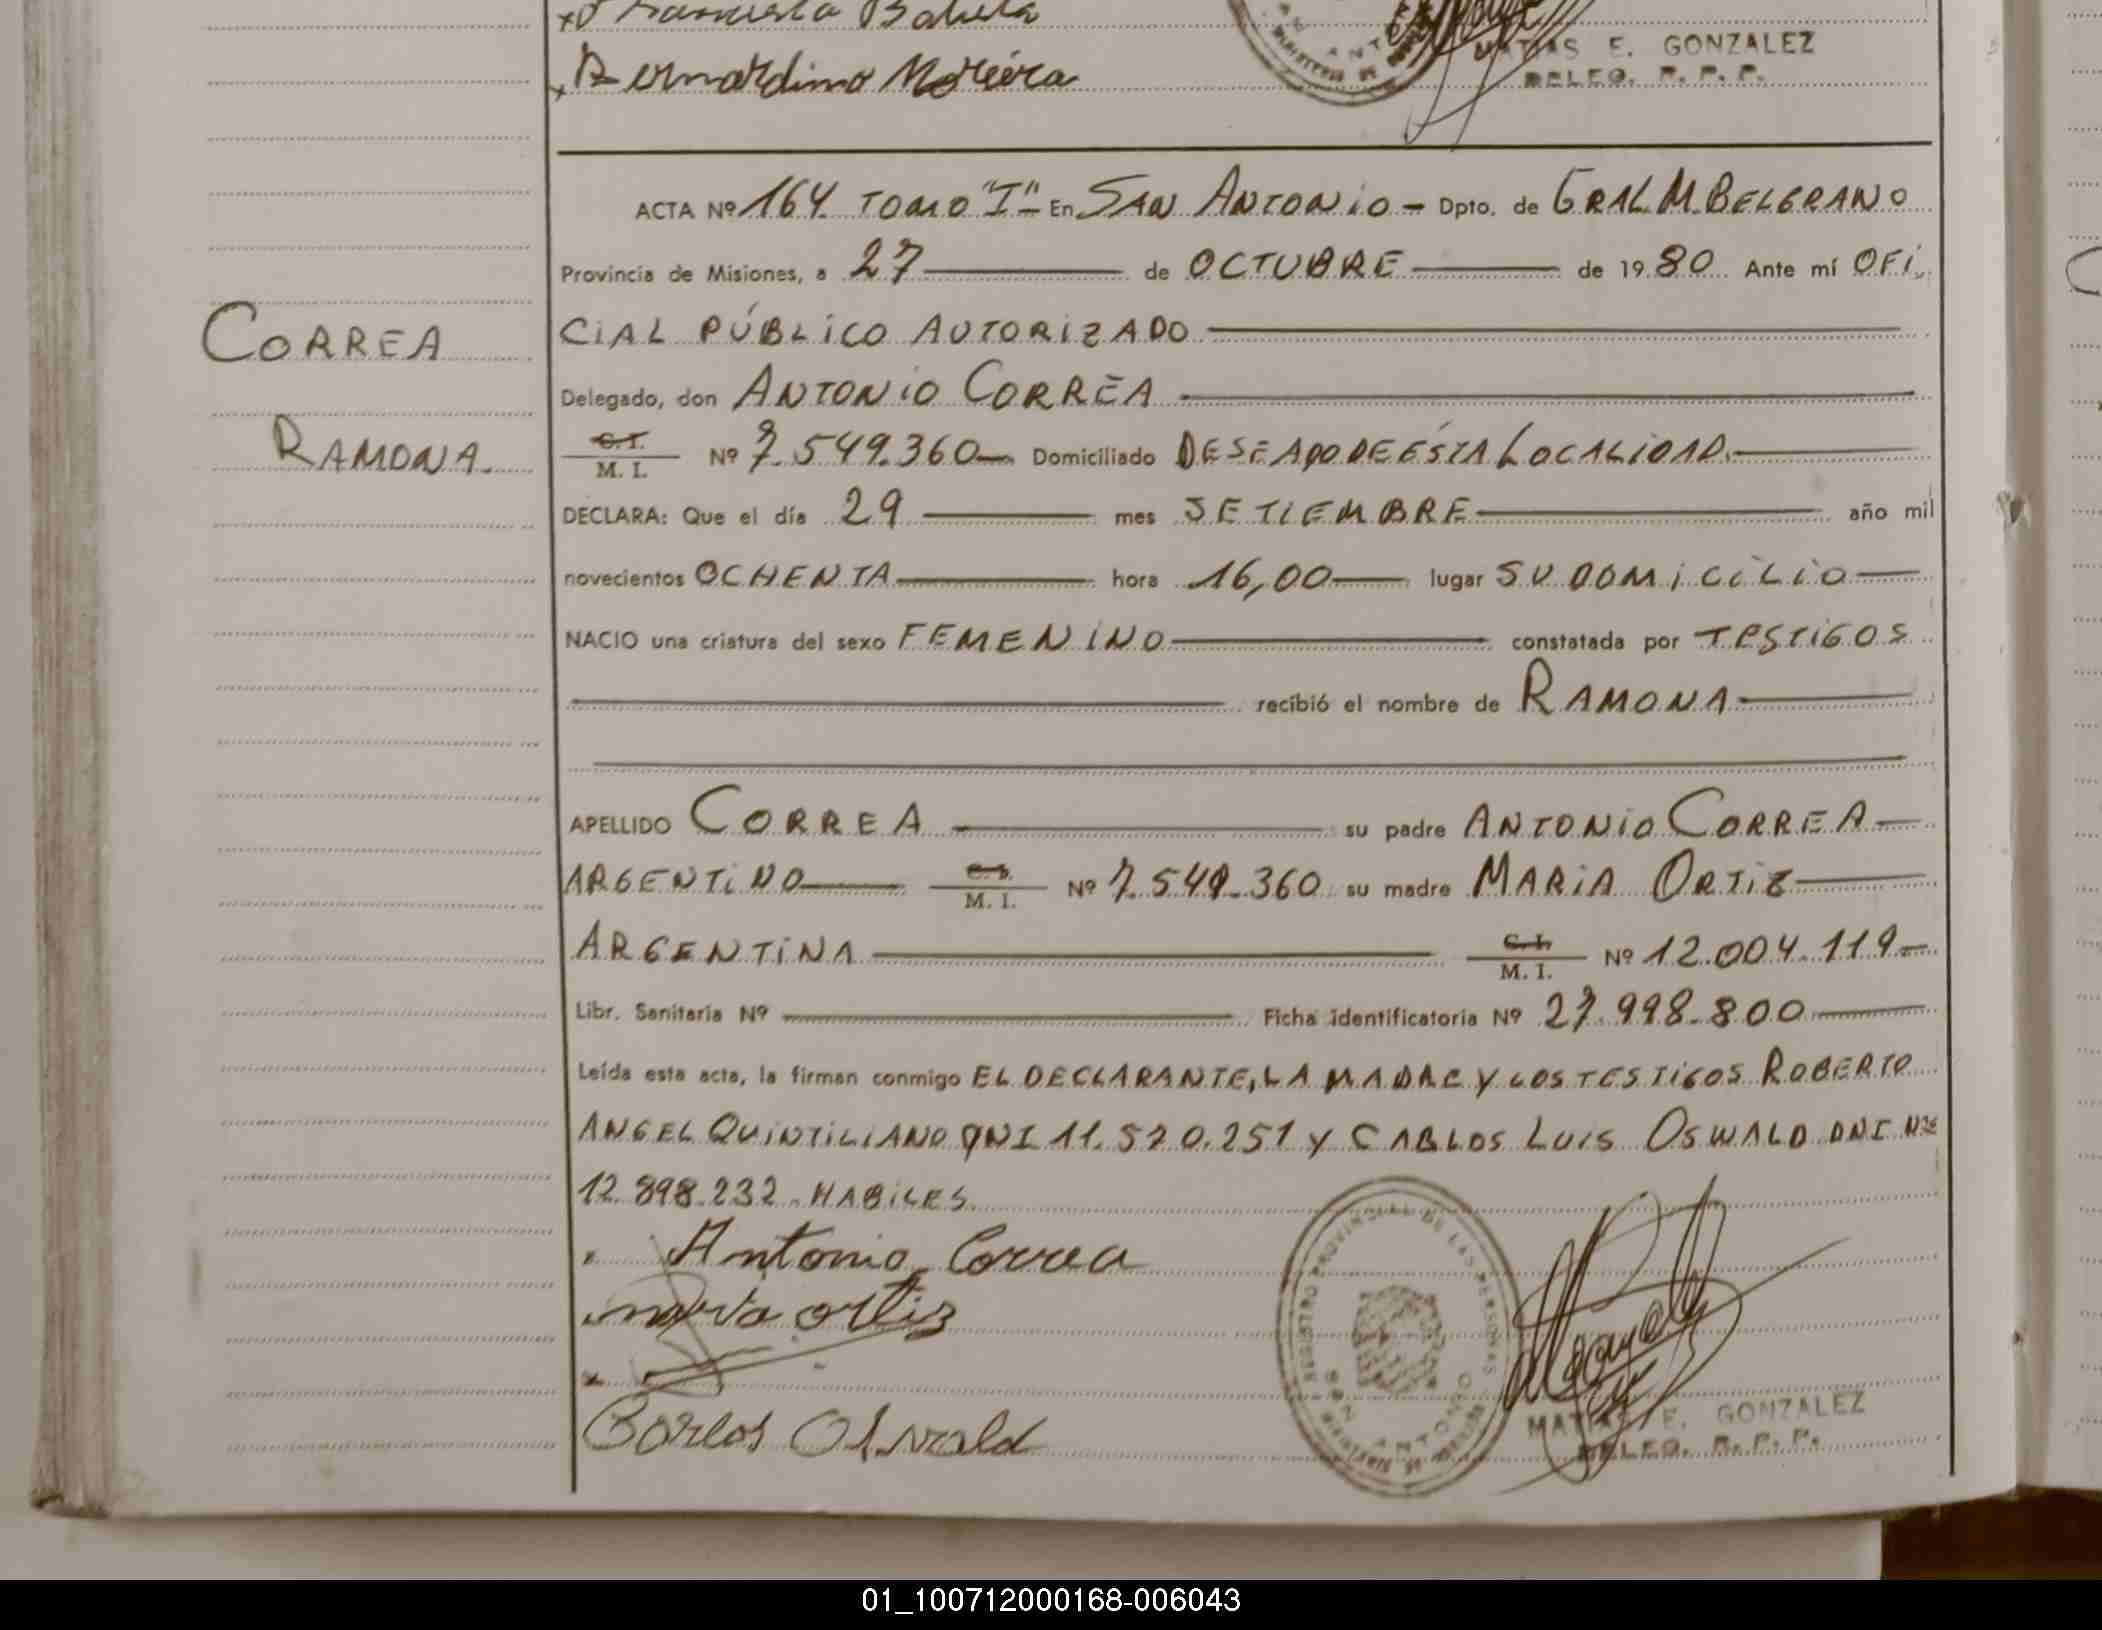 Bernardino Moreira
MATIAS E. GONZALEZ
DELEG. R. P. P.
ACTA Nº 164 TOMO "I" En SAN ANTONIO - Dpto. de GRAL. M. BELGRANO
Provincia de Misiones, a 27 de OCTUBRE de 1980 Ante mí OFI
CIAL PÚBLICO AUTORIZADO
CORREA
Delegado, don ANTONIO CORREA
RAMONA.
C. I.
M. I. Nº 7.549.360 Domiciliado DESEADO DE ÉSTA LOCALIDAD.
DECLARA: Que el día 29 mes SETIEMBRE año mil
novecientos OCHENTA hora 16,00 lugar SU DOMICILIO
NACIO una criatura del sexo FEMENINO constatada por TESTIGOS
recibió el nombre de RAMONA
APELLIDO CORREA su padre ANTONIO CORREA
ARGENTINO C. I. M. I. Nº 7.549.360 su madre MARIA ORTIZ
ARGENTINA C. I. M. I. Nº 12.004.119
Libr. Sanitaria Nº Ficha identificatoria Nº 27.998.800
Leída esta acta, la firman conmigo EL DECLARANTE, LA MADRE Y LOS TESTIGOS ROBERTO
ANGEL QUINTILIANO DNI 11.520.251 Y CARLOS LUIS OSWALD DNI Nº
12.898.232 HABILES.
Antonio Correa
maria ortiz
Carlos Oswald
REGISTRO PROVINCIAL DE LAS PERSONAS
SAN ANTONIO
MATIAS E. GONZALEZ
DELEG. R. P. P.
01_100712000168-006043